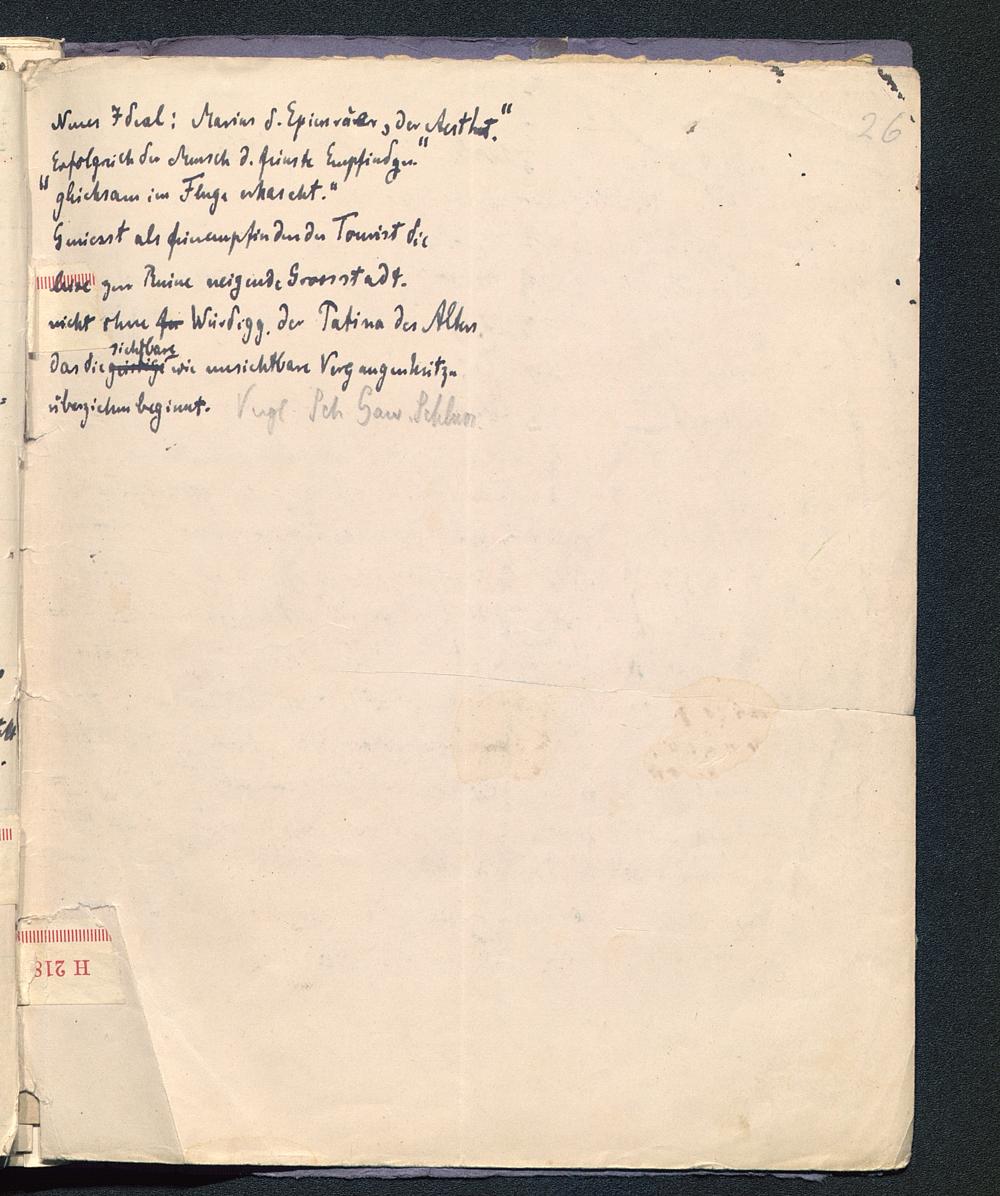 26
Neues Ideal: Marius d. Epicuräer, "der Aesthet."
Erfolgreich der Mensch d. feinste Empfindgen."
"gleichsam im Fluge erhascht."
Geniesst als feinempfindender Tourist die
leise zur Ruine neigende Grossstadt.
nicht ohne für Würdigg. der Patina des Alters
sichtbare
das die geistige wie unsichtbare Vergangenheit zu
überziehen beginnt. Vergl. Sch
H 218